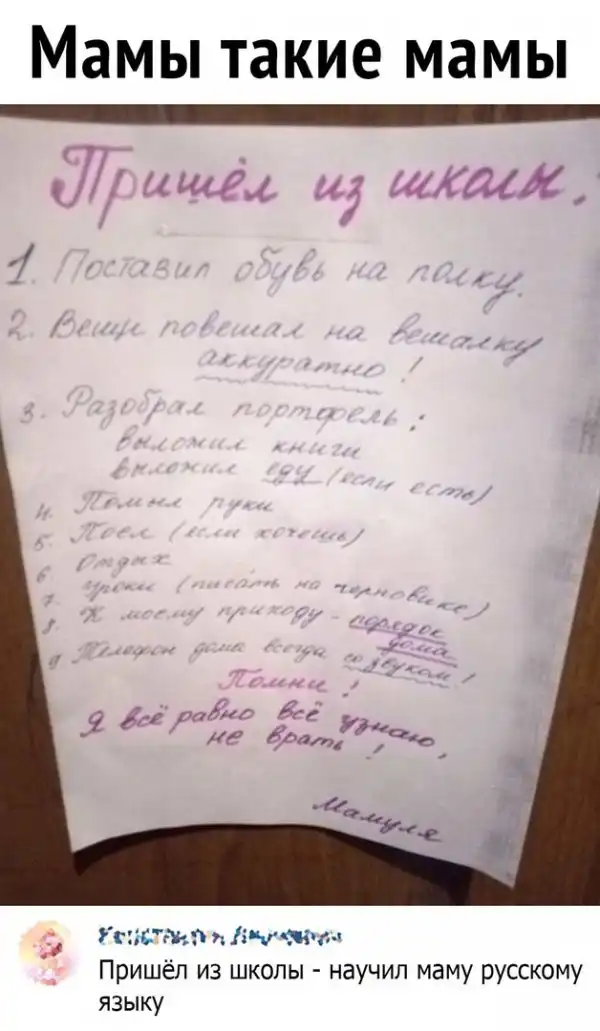 Мамы такие мамы
Пришёл из школы:
1. Поставил обувь на полку.
2. Вещи повешал на вешалку
аккуратно!
3. Разобрал портфель:
выложил книги
выложил еду (если есть)
4. Помыл руки
5. Поел (если хочешь)
6. Отдых
7. уроки (писать на черновике)
8. К моему приходу - порядок
дома
9 Телефон дома всегда со звуком!
Помни!
Я всё равно всё узнаю,
не врать!
Мамуля
Пришёл из школы - научил маму русскому
языку